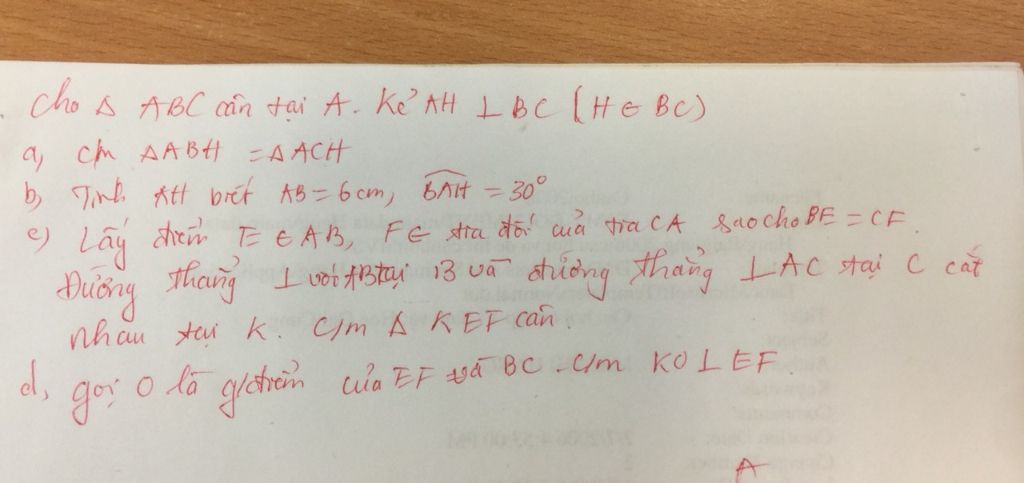 Cho Δ ABC cân tại A. Kẻ AH ⊥ BC (H ∈ BC)
a, C/m ΔABH = ΔACH
b, Tính AH biết AB = 6cm, \widehat{BAH} = 30°
c) Lấy điểm E ∈ AB, F ∈ tia đối của tia CA sao cho BE = CF.
Đường thẳng ⊥ với AB tại B và đường thẳng ⊥ AC tại C cắt
nhau tại K. C/m Δ KEF cân.
d, gọi O là g/điểm của EF và BC. C/m KO ⊥ EF
A